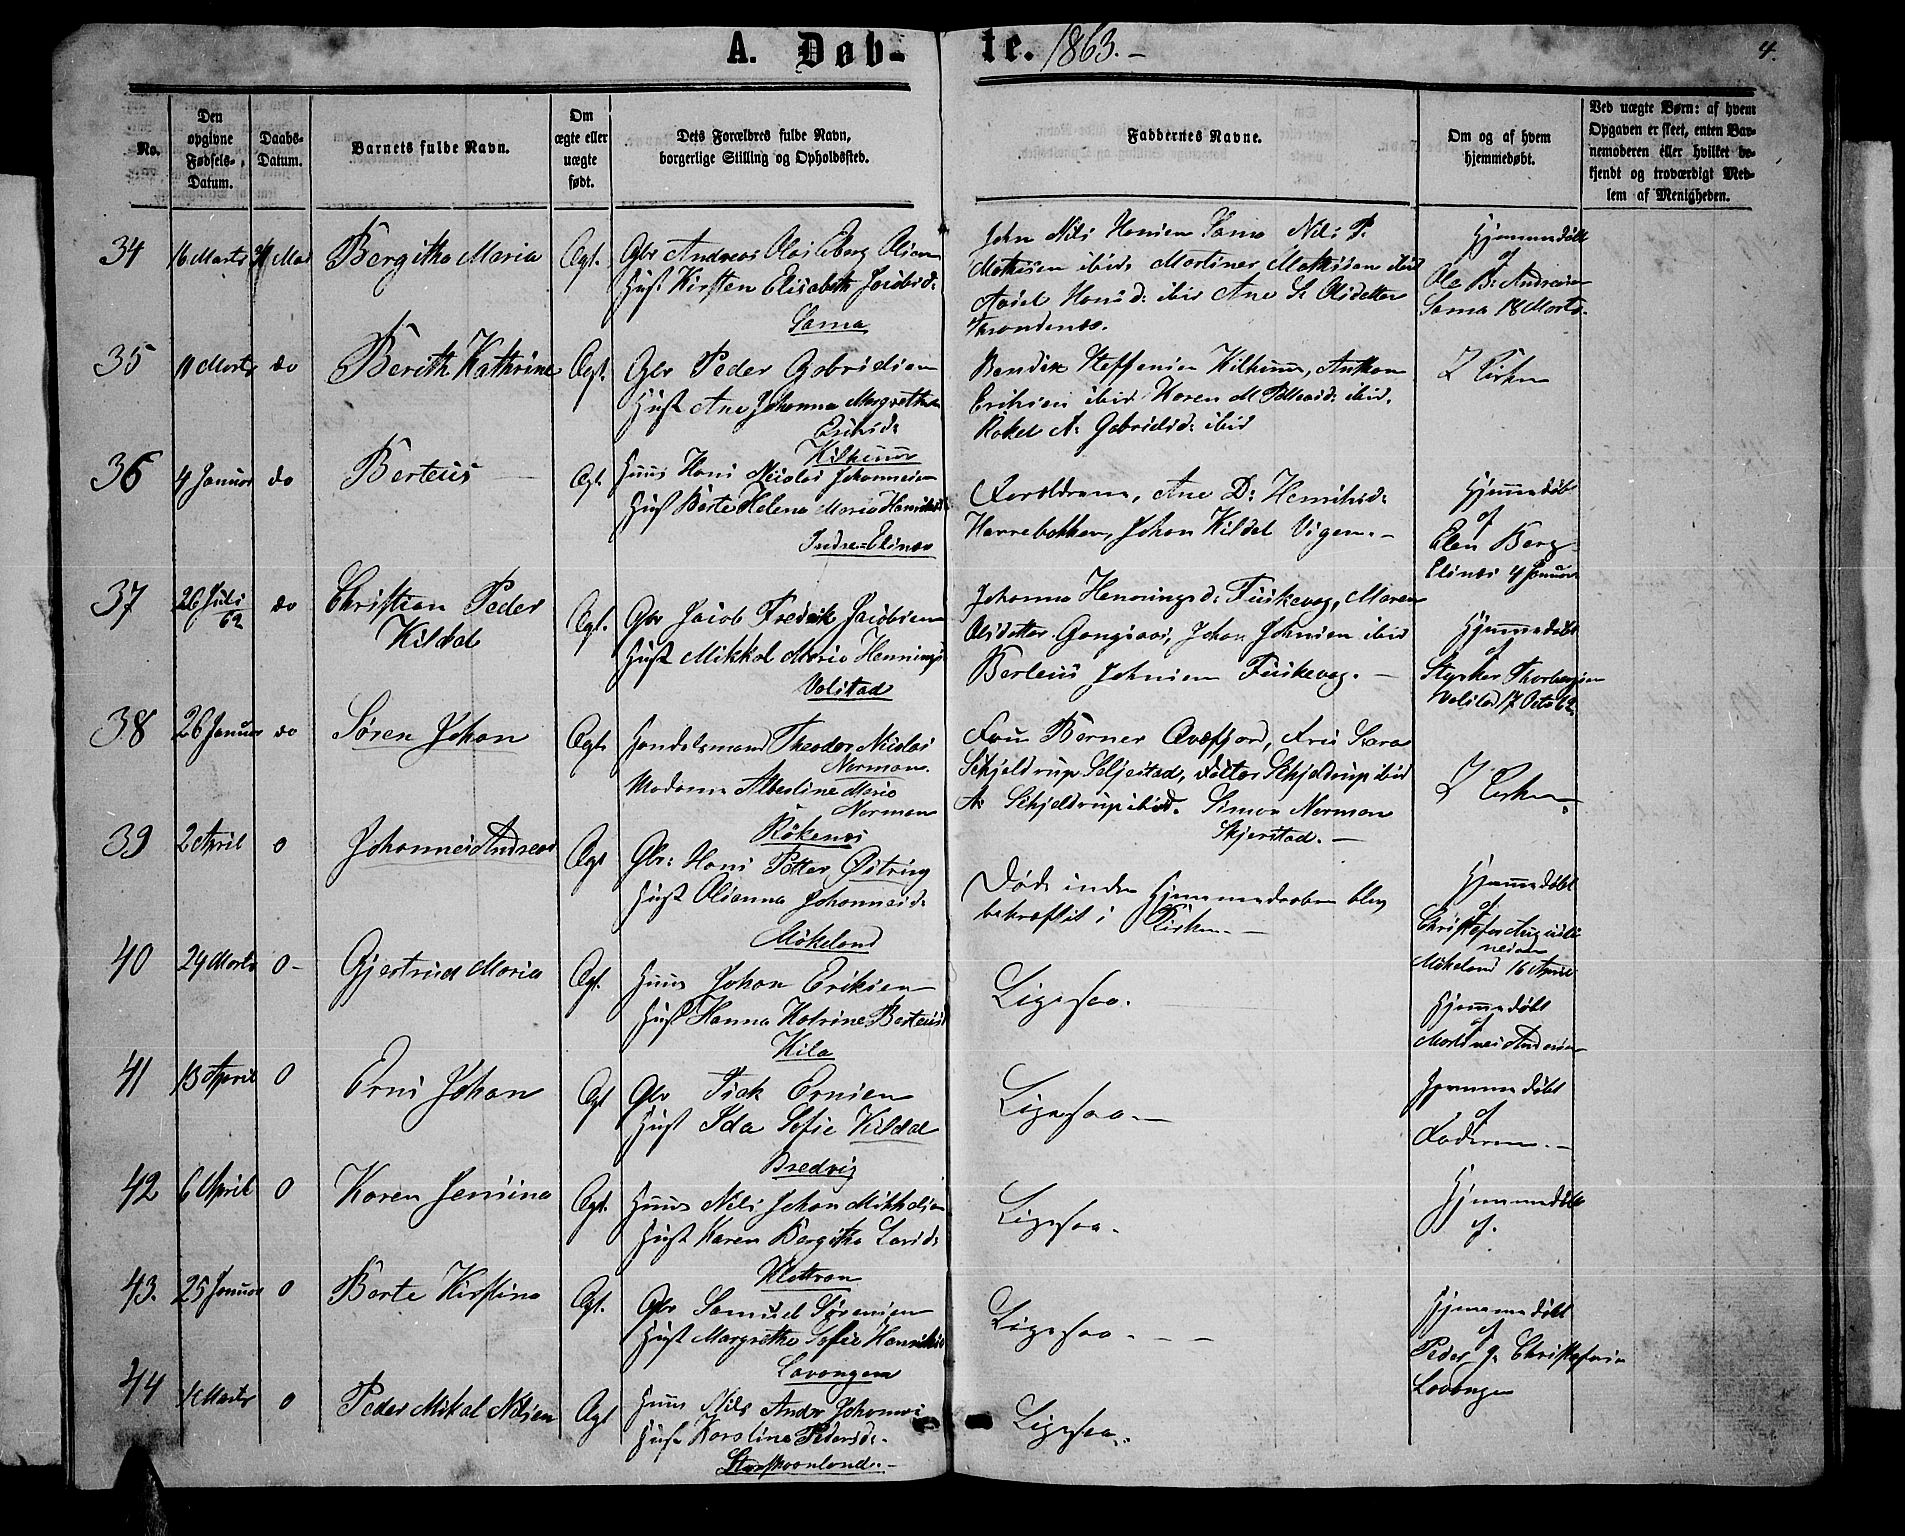 A. Døb-
te. 1863.-
4.
No.
Den
opgivne
Fødsels-
Datum.
Daabs-
Datum.
Barnets fulde Navn.
Om
ægte eller
uægte
født.
Dets Forældres fulde Navn,
borgerlige Stilling og Opholdssted.
Faddernes Navne.
Om og af hvem
hjemmedøbt.
Ved uægte Børn: af hvem
Opgaven er skeet, enten Bar-
nemoderen eller hvilket be-
kjendt og troværdigt Med-
lem af Menigheden.
34
16 Marts
Bergitha Maria
Ægt.
Gbr Andreas Olai Olsen
Hust Kirsten Elisabeth Jacobsd:
Sama
John Nils Hansen Sama Nils P.
Mathisen ibid: Martiner Mathisen ibid
Hansd: ibid Ane S. Olsdatter
Trondenæs.
Hjemmedøbt
af
Ole B: Andersen
Sama 18 Marts.
35
11 Marts
do
Bereth Kathrine
Ægt.
Gbr Peder Gabrielsen
Hust Ane Johanna Margrethe
Eriksd:
Kilhuus
Bendix Steffensen Kilhuus, Anton
Eriksen ibid Karen M ibid.
Rakel A: Gabrielsd: ibid
I Kirken
36
4 Januar
do
Berteus
Ægt.
Huus Hans Nicolai Johannesen
Hust Berte Helena Maria Henriksd:
Indre=Elinæs
Forældrene, Ane D: Henriksd:
Johan Kildal Vigen.-
Hjemmedøbt
af
Elen Berg
Elinæs 4 Januar
37
26 Juli
62
do
Christian Peder
Kildal
Ægt.
Gbr Jacob Fredrik Jacobsen
Hust Mikkal Maria Hennings
Volstad
Johanna Henningsd: Fiskevog, Maren
Olsdatter Gangsaas, Johan Johnsen ibid
Berteus Johnsen Fiskevog. -
Hjemmedøbt
af
Styrker Thorbergsen
Volstad 17 Octo 62.
38
26 Januar
do
Søren Johan
Ægt.
Handelsmand Theodor Nicolai
Norman.
Madame Albertine Maria
Norman
Røkenes
Fru Berner Qvæfjord, Frk Sara
Schjeldrup Seljestad, Schjeldrup ibid
A: Schjeldrup ibid. Simon Norman
Skjerstad. -
I Kirken
39
2 April
0
Johannes Andreas
Ægt
Gbr: Hans Petter Østring
Hust Olianna Johannesd:
Møkeland
Døde inden Hjemmedaaben blev
bekræftet i Kirken. -
Hjemmedøbt
af
Christofer Augusti
nesen
Møkeland 16 April
40
24 Marts
0-
Gjertrud Maria
Ægt.
Huus Johan Eriksen
Hust Hanna Katrine Berteusd
Kila
Ligesaa.
Hjemmedøbt
af
Martines Andersen
41
13 April
0
Erns Johan
Ægt
Gbr Isak Ernsen
Hust Ida Sofie Kildal
Bredvig
Ligesaa. -
Hjemmedøbt
af
Faderen. -
42
6 April
0
Karen Jensina
Ægt.
Huus Nils Johan Mikkelsen
Hust Karen Bergitha Larsd:
Klottran
Ligesaa.
Hjemmedøbt
af.
43.
25 Januar
0
Berte Kirstina
Ægt.
Gbr Samuel Sørensen
Hust Margretha Sofie Henriksd
Lavangen
Ligesaa. - -
Hjemmedøbt
af
Peder J. Christofersen
Lavangen
44
Marts
0
Peder Mikal Nilsen
Ægt
Huus Nils Andr Johannes
Hust Karoline Pedersd:
Storskaanland. -
Ligesaa.